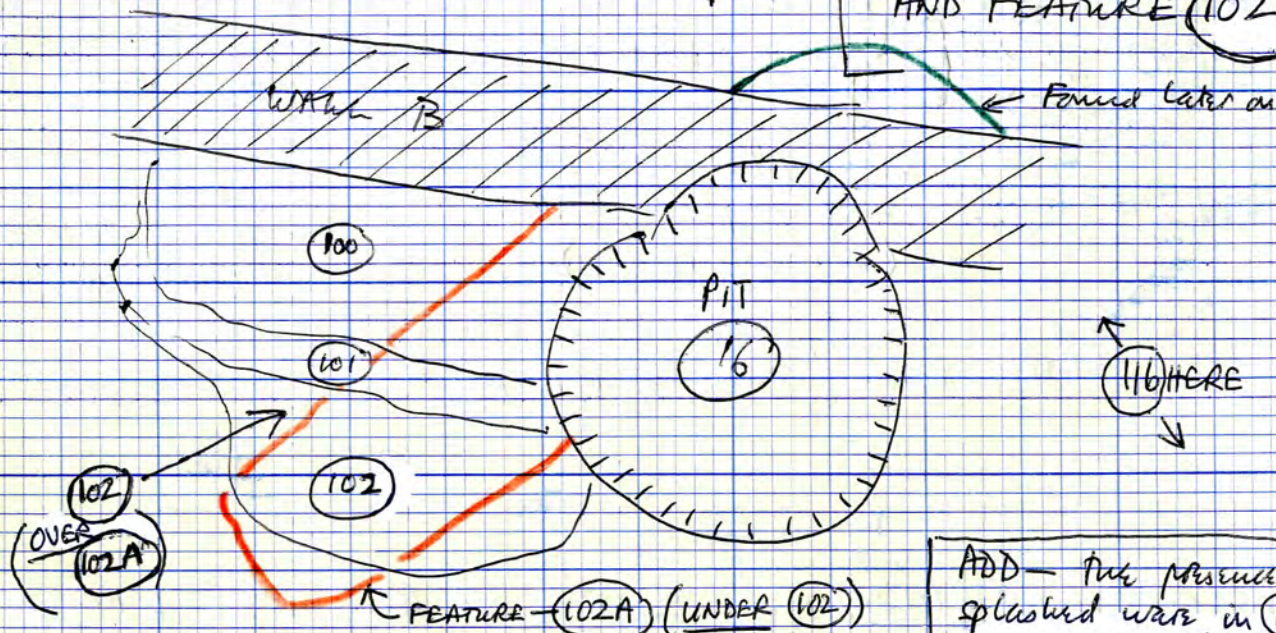 AND FEATURE (102
Found later on
WALL B
100
PIT
16
101
116 HERE
102
102
(OVER
102A)
FEATURE - 102A (UNDER 102)
ADD - the presence
splashed ware in